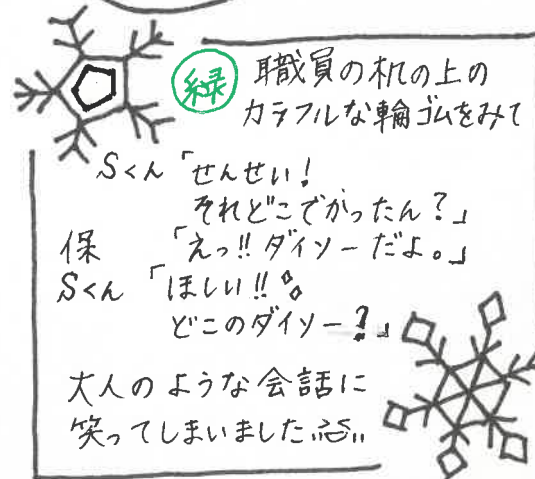 緑 職員の机の上の
カラフルな輪ゴムをみて
Sくん「せんせい!
それどこでかったん?」
保 「えっ!!ダイソーだよ。」
Sくん「ほしい!!
どこのダイソー?」
大人のような会話に
笑ってしまいました